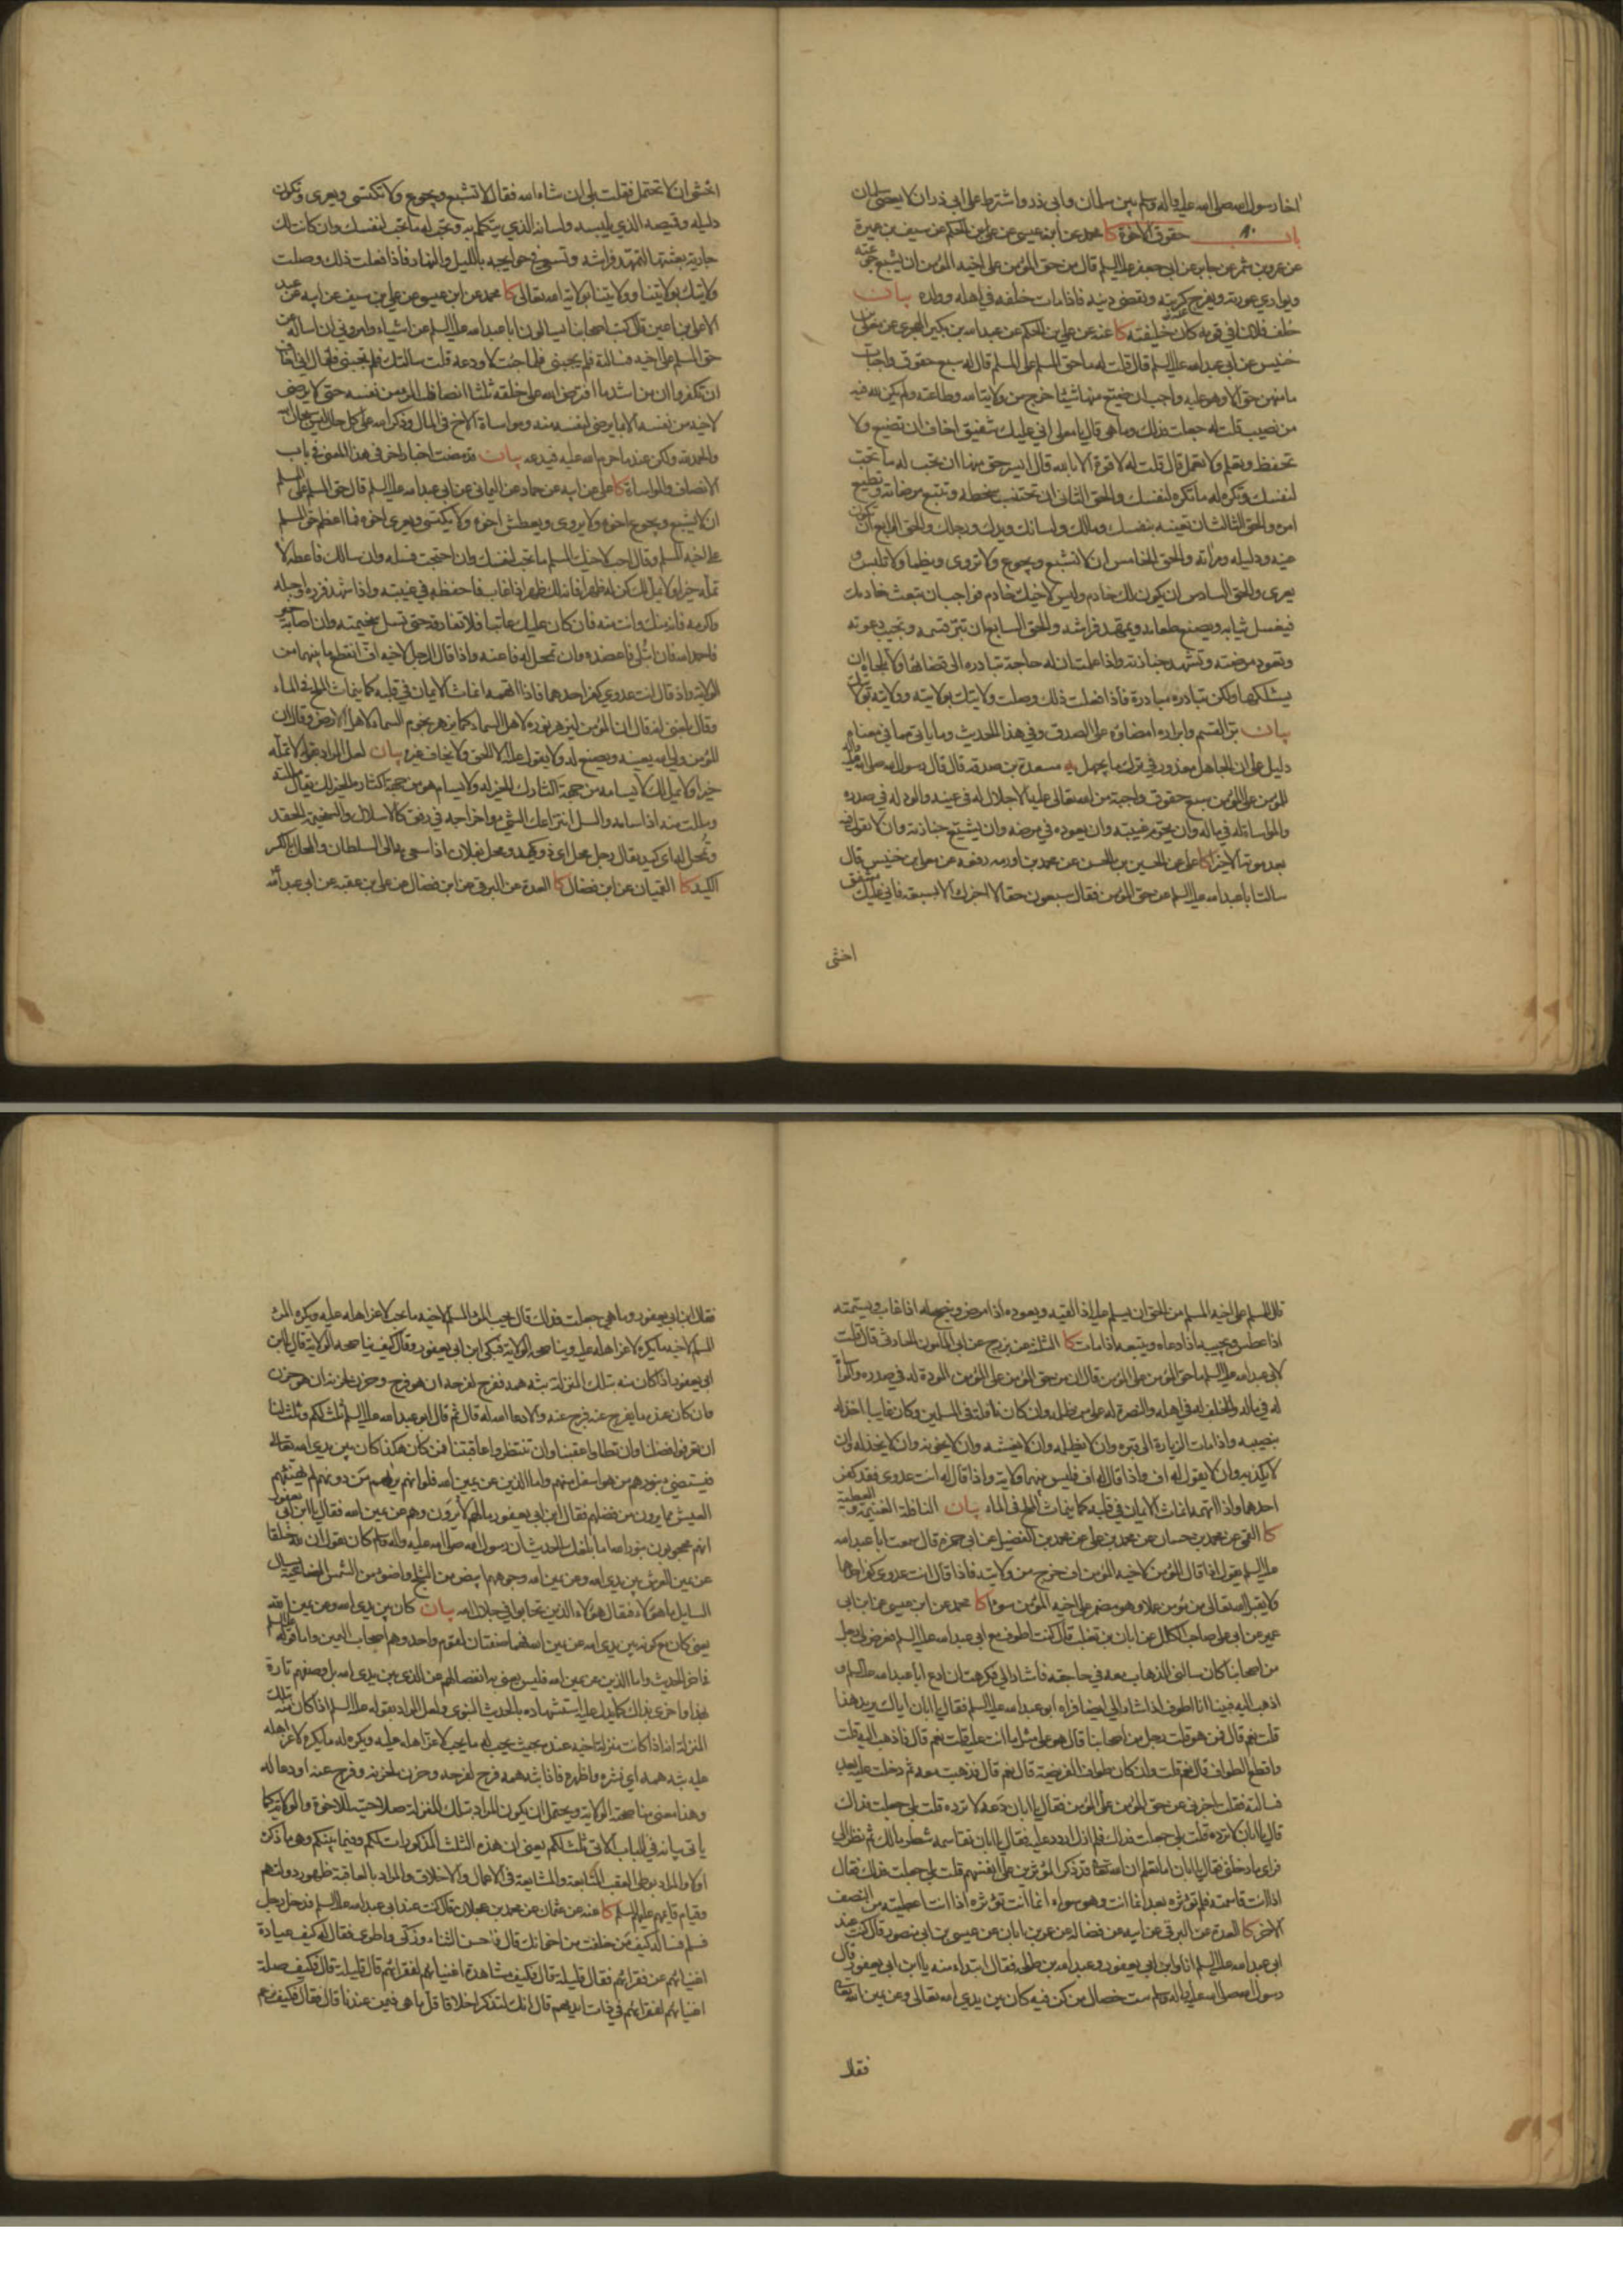 اخا رسول الله صلى الله عليه واله وسلم بين سلمان وابي ذر واشترط على ابي ذر ان لا يعصي سلمان
باب ٨٠ حقوق الاخوة كا محمد عن ابن عيسى عن علي بن الحكم عن سيف بن عميرة
عن عمرو بن شمر عن جابر عن ابي جعفر عليه السلم قال من حق المؤمن على اخيه المؤمن ان يشبع جوعته
ويواري عورته ويفرج كربته ويقضي دينه فاذا مات خلفه في اهله وولده بيان
خلف فلان في قومه كان خليفته كا عنه عن علي بن الحكم عن عبدالله بن بكير الهجري عن معلى بن
خنيس عن ابي عبدالله عليه السلم قال قلت له ما حق المسلم على المسلم قال له سبع حقوق واجبات
ما منهن حق الا وهو عليه واجب ان ضيع منها شيئا خرج من ولاية الله وطاعته ولم يكن لله فيه
من نصيب قلت له جعلت فداك وما هي قال يا معلى اني عليك شفيق اخاف ان تضيع ولا
تحفظ وتعلم ولا تعمل قال قلت له لا قوة الا بالله قال ايسر حق منها ان تحب له ما تحب
لنفسك وتكره له ما تكره لنفسك والحق الثاني ان تجتنب سخطه وتتبع مرضاته وتطيع
امره والحق الثالث ان تعينه بنفسك ومالك ولسانك ويدك ورجلك والحق الرابع ان تكون
عينه ودليله ومرآته والحق الخامس ان لا تشبع ويجوع ولا تروى ويظمأ ولا تلبس و
يعرى والحق السادس ان يكون لك خادم وليس لاخيك خادم فواجب ان تبعث خادمك
فيغسل ثيابه ويصنع طعامه ويمهد فراشه والحق السابع ان تبر قسمه وتجيب دعوته
وتعود مرضته وتشهد جنازته واذا علمت ان له حاجة تبادره الى قضائها ولا تلجاه ان
يسئلكها ولكن تبادره مبادرة فاذا فعلت ذلك وصلت ولايتك بولايته وولايته بولايتك
بيان بر القسم وابراره امضاؤه على الصدق وفي هذا الحديث وما ياتي مما في معناه
دليل على ان الجاهل معذور في ترك ما يجهل يه مسعدة بن صدقة قال قال رسول الله صلى الله عليه واله
للمؤمن على المؤمن سبع حقوق واجبة من الله تعالى عليه الاجلال له في عينه والود له في صدره
والمواساة له في ماله وان يحرم غيبته وان يعوده في مرضه وان يشيع جنازته وان لا يقول فيه
بعد موته الا خيرا كا علي عن الحسين بن الحسن عن محمد بن اورمه رفعه عن معلى بن خنيس قال
سالت ابا عبدالله عليه السلم عن حق المؤمن فقال سبعون حقا لا اخبرك الا بسبعة فاني عليك مشفق
اخشى
اخشى ان لا تحتمل فقلت بلى ان شاء الله فقال لا تشبع ويجوع ولا تكتسي ويعرى وتكون
دليله وقميصه الذي يلبسه ولسانه الذي يتكلم به وتحب له ما تحب لنفسك وان كانت لك
جارية بعثتها لتمهد فراشه وتسعى في حوايجه بالليل والنهار فاذا فعلت ذلك وصلت
ولايتك بولايتنا وولايتنا بولاية الله تعالى كا محمد عن ابن عيسى عن علي بن سيف عن ابيه عن عبد
الاعلى بن اعين قال كتب اصحابنا يسالون ابا عبدالله عليه السلم عن اشياء وامروني ان اساله عن
حق المسلم على اخيه فسالته فلم يجبني فلما جئت لاودعه قلت سالتك فلم تجبني فقال اني اخاف
ان تكفروا ان من اشد ما افترض الله على خلقه ثلثا انصاف المرء من نفسه حتى لا يرضى
لاخيه من نفسه الا بما يرضى لنفسه منه ومواساة الاخ في المال وذكر الله على كل حال ليس سبحان الله
والحمد لله ولكن عند ما حرم الله عليه فيدعه بيان قد مضت اخبار اخر في هذا المعنى في باب
الانصاف والمواساة كا علي عن ابيه عن حماد عن اليماني عن ابي عبدالله عليه السلم قال حق المسلم على المسلم
ان لا يشبع ويجوع اخوه ولا يروى ويعطش اخوه ولا يكتسي ويعرى اخوه فما اعظم حق المسلم
على اخيه المسلم وقال احب لاخيك المسلم ما تحب لنفسك وان احتجت فسله وان سالك فاعطه لا
تمله خيرا ولا يمله لك كن له ظهرا فانه لك ظهر اذا غاب فاحفظه في غيبته واذا شهد فزره واجله
واكرمه فانه منك وانت منه فان كان عليك عاتبا فلا تفارقه حتى تسل سخيمته وان اصابه خير
فاحمد الله فان ابتلي فاعضده وان تمحل له فاعنه واذا قال الرجل لاخيه اف انقطع ما بينهما من
الولاية واذ قال انت عدوي كفر احدهما فاذا اتهمه انماث الايمان في قلبه كما ينماث الملح في الماء
وقال بلغني انه قال ان المؤمن ليزهر نوره لاهل السماء كما يزهر نجوم السماء لاهل الارض وقال ان
المؤمن ولي الله يعينه ويصنع له ولا يقول عليه الا الحق ولا يخاف غيره بيان لعل المراد بقوله لا تمله
خيرا ولا يمل لك لا يسامه من جهة اكثارك الخير له ولا يسام هو من جهة اكثاره الخير لك يقال مللته
ومللت منه اذا سامه والسل انتزاعك الشيء واخراجه في رفق كالاسلال والسخيمة الحقد
وتمحل له اي كيد يقال رجل محل اي ذو كيد ومحل بفلان اذا سعى به الى السلطان والمحال بالكسر
الكيد كا القميان عن ابن فضال كا العدة عن البرقي عن ابن فضال عن علي بن عقبه عن ابي عبدالله
قال للمسلم على اخيه المسلم من الحق ان يسلم عليه اذا لقيه ويعوده اذا مرض وينصح له اذا غاب ويسمته
اذا عطس ويجيبه اذا دعاه ويتبعه اذا مات كا الثلثة عن بزرج عن ابي المامون الحارثي قال قلت
لابي عبدالله عليه السلم ما حق المؤمن على المؤمن قال ان من حق المؤمن على المؤمن المودة له في صدره والمواساة
له في ماله والخلف له في اهله والنصرة له على من ظلمه وان كان نافلة في المسلمين وكان غايبا اخذ له
بنصيبه واذا مات الزيارة الى قبره وان لا يظلمه وان لا يغشه وان لا يخونه وان لا يخذله وان
لا يكذبه وان لا يقول له اف واذا قال له اف فليس بينهما ولاية واذا قال له انت عدوي فقد كفر
احدهما واذا اتهمه انماث الايمان في قلبه كما ينماث الملح في الماء بيان النافلة الغنيمة والعطية
كا القمي عن محمد بن حسان عن محمد بن علي عن محمد بن الفضيل عن ابي حمزه قال سمعت ابا عبدالله
عليه السلم يقول اذا قال المؤمن لاخيه المؤمن اف خرج من ولايته فاذا قال انت عدوي كفر احدهما
ولا يقبل الله تعالى من مؤمن عملا وهو مضمر على اخيه المؤمن سوءا كا محمد عن ابن عيسى عن ابن ابي
عمير عن ابي علي صاحب الكلل عن ابان بن تغلب قال كنت اطوف مع ابي عبدالله عليه السلم فعرض لي رجل
من اصحابنا كان سالني الذهاب معه في حاجته فاشار الي فكرهت ان ادع ابا عبدالله عليه السلم و
اذهب اليه فبينا انا اطوف اذ اشار الي ايضا فراه ابو عبدالله عليه السلم فقال يا ابان اياك يريد هذا
قلت نعم قال فمن هو قلت رجل من اصحابنا قال هو على مثل ما انت عليه قلت نعم قال فاذهب اليه قلت
واقطع الطواف قال نعم قلت وان كان طواف الفريضة قال نعم قال فذهبت معه ثم دخلت عليه بعد
فسالته فقلت اخبرني عن حق المؤمن على المؤمن فقال يا ابان دعه لا ترده قلت بلى جعلت فداك
قال يا ابان لا ترده قلت بلى جعلت فداك فلم ازل اردد عليه فقال يا ابان تقاسمه شطر مالك ثم نظر الي
فراى ما دخلني فقال يا ابان اما تعلم ان الله تعالى قد ذكر المؤثرين على انفسهم قلت بلى جعلت فداك فقال
اذا انت قاسمته فلم تؤثره بعد انما انت وهو سواء انما انت تؤثره اذا انت اعطيته من النصف
الاخر كا العدة عن البرقي عن ابيه عن فضاله عن عمر بن ابان عن عيسى بن ابي منصور قال كنت عند
ابي عبدالله عليه السلم انا وابن ابي يعفور وعبدالله بن طلحة فقال ابتداء منه يا ابن ابي يعفور قال
رسول الله صلى الله عليه واله وسلم ست خصال من كن فيه كان بين يدي الله تعالى وعن يمين الله تعالى
فقال
فقال ابن ابي يعفور وما هي جعلت فداك قال يحب المرء المسلم لاخيه ما يحب لاعز اهله عليه ويكره المرء
المسلم لاخيه ما يكره لاعز اهله عليه ويناصحه الولاية فبكى ابن ابي يعفور وقال كيف يناصحه الولاية قال يا ابن
ابي يعفور اذا كان منه بتلك المنزلة بثه همه ففرح لفرحه ان هو فرح وحزن لحزنه ان هو حزن
وان كان عنده ما يفرج عنه فرج عنه والا دعا الله له قال ثم قال ابو عبدالله عليه السلم ثلث لكم وثلث لنا
ان تعرفوا فضلنا وان تطاوا عقبنا وان تنتظروا عاقبتنا فمن كان هكذا كان بين يدي الله تعالى
فيستضيء بنورهم من هو اسفل منهم واما الذين عن يمين الله فلو انهم يراهم من دونهم لم يهنئهم
العيش مما يرون من فضلهم فقال ابن ابي يعفور ما لهم لا يرون وهم عن يمين الله فقال يا ابن ابي يعفور
انهم محجوبون بنور الله اما بلغك الحديث ان رسول الله صلى الله عليه واله وسلم كان يقول ان لله خلقا
عن يمين العرش بين يدي الله وعن يمين الله وجوههم ابيض من الثلج واضوء من الشمس الضاحية يسال
السايل ما هؤلاء فقال هؤلاء الذين تحابوا في جلال الله بيان كان بين يدي الله وعن يمين الله
يعني كان مع كونه بين يدي الله عن يمين الله فهما صفتان لقوم واحد وهم اصحاب اليمين واما قوله عليه السلم
في اخر الحديث واما الذين عن يمين الله فليس يعني به انفصالهم عن الذي بين يدي الله بل وصفهم تارة
بهذا واخرى بذاك كما يدل عليه استشهاده بالحديث النبوي ولعل المراد بقوله عليه السلم اذا كان منه بتلك
المنزلة انه اذا كانت منزلة اخيه عنده بحيث يحب له ما يحب لاعز اهله عليه ويكره له ما يكره لاعز اهله
عليه بثه همه اي نشره واظهره فاذا بثه همه فرح لفرحه وحزن لحزنه وفرج عنه او دعا له
وهذا معنى مناصحة الولاية ويحتمل ان يكون المراد بتلك المنزلة صلاحيته للاخوة والولاية كما
ياتي بيانه في الباب الاتي ثلث لكم يعني ان هذه الثلث المذكورات لكم وفيما بينكم وهو ما ذكره
اولا والمراد بوطي العقب المتابعة والمشايعة في الاعمال والاخلاق والمراد بالعاقبة ظهور دولتهم
وقيام قايمهم عليهم السلم كا عنه عن عثمان عن محمد بن عجلان قال كنت عند ابي عبدالله عليه السلم فدخل رجل
فسلم فساله كيف من خلفت من اخوانك قال فاحسن الثناء وزكى واطرى فقال له كيف عيادة
اغنيائهم عن فقرائهم فقال قليلة قال فكيف مشاهدة اغنيائهم لفقرائهم قال قليلة قال فكيف صلة
اغنيائهم لفقرائهم في ذات ايديهم قال انك لتذكر اخلاقا قل ما هي فيمن عندنا قال فقال فكيف تزعم